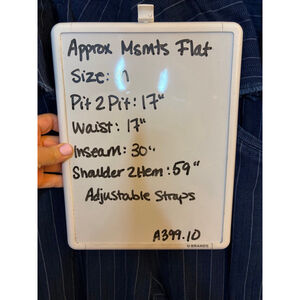 Approx Msmts Flat
Size:
Pit 2 Pit: 17"
Waist: 17"
Inseam: 30"
Shoulder 2 Hem: 59"
Adjustable Straps
A399.10
U BRANDS